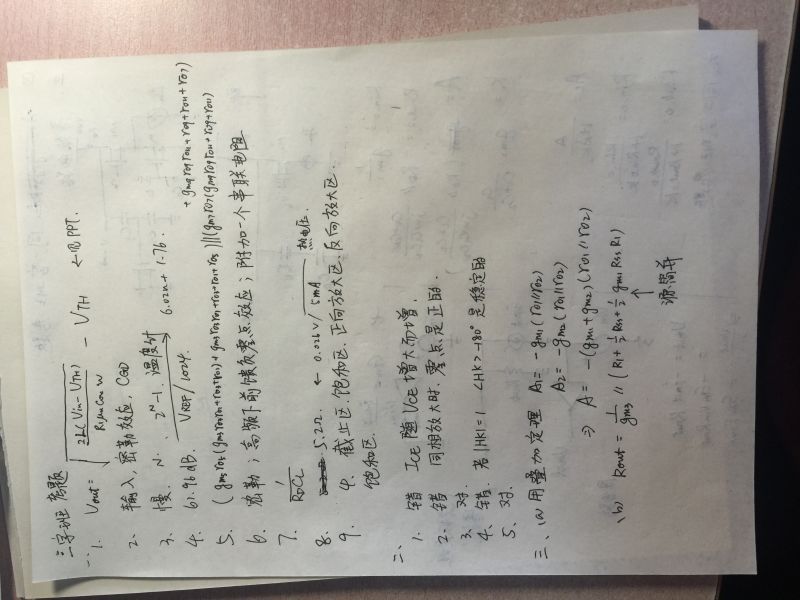 三字班 考题
一、1. Vout = √(2L(Vin - VTH) / R1μnCox W) - VTH ← 见PPT.
2. 输入, 密勒效应, CGD
3. 慢. N. 2^N-1. 温度计
4. 61.96 dB. VREF/1024. 6.02n+1.76.
5. (gm5ro5(gm3ro3ro1+ro3+ro1)+gm3ro3ro1+ro3+ro1+ro5)||(gm7ro7(gm9ro9ro11+ro9+ro11)
+gm9ro9ro11+ro9+ro11+ro7)
6. 密勒; 高频下前馈负零点效应; 附加一个串联电阻
7. 1/RDCL
8. 5.2Ω. ← 0.026V/5mA 热电压.
9. 4. 截止区. 饱和区. 正向放大区. 反向放大区.
饱和区.
二、
1. 错 ICE 随 VCE 增大而增.
2. 错 同相放大时. 零点是正的.
3. 对.
4. 错. 若|HK|=1 <HK>-180° 是稳定的
5. 对.
三、(a) 用叠加定理 A1= -gm1(ro1//ro2)
A2= -gm2(ro1//ro2)
⇒ A= -(gm1+gm2)(ro1//ro2)
(b) Rout= 1/gm3 // (R1+½Rss+½gm1RssR1)
↑
源简并